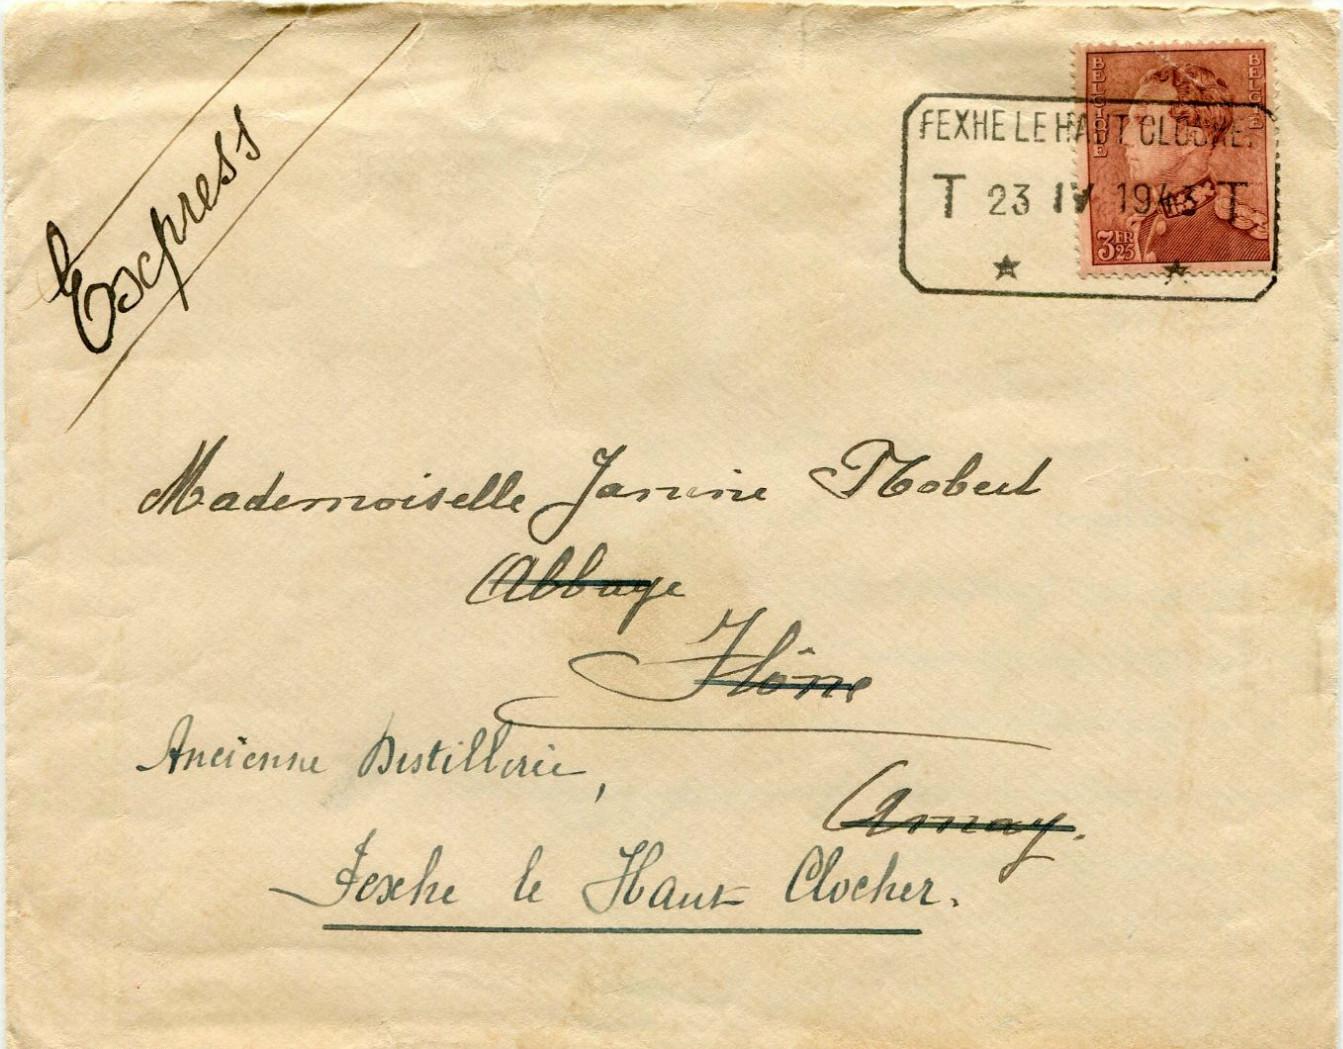 Express
BELGIQUE
BELGIË
FEXHE LE HAUT CLOCHE.
T 23 IV 1943 T
3FR25
Mademoiselle Janine
Abbaye
Flône
Ancienne Distillerie,
Amay.
Fexhe le Haut Clocher.